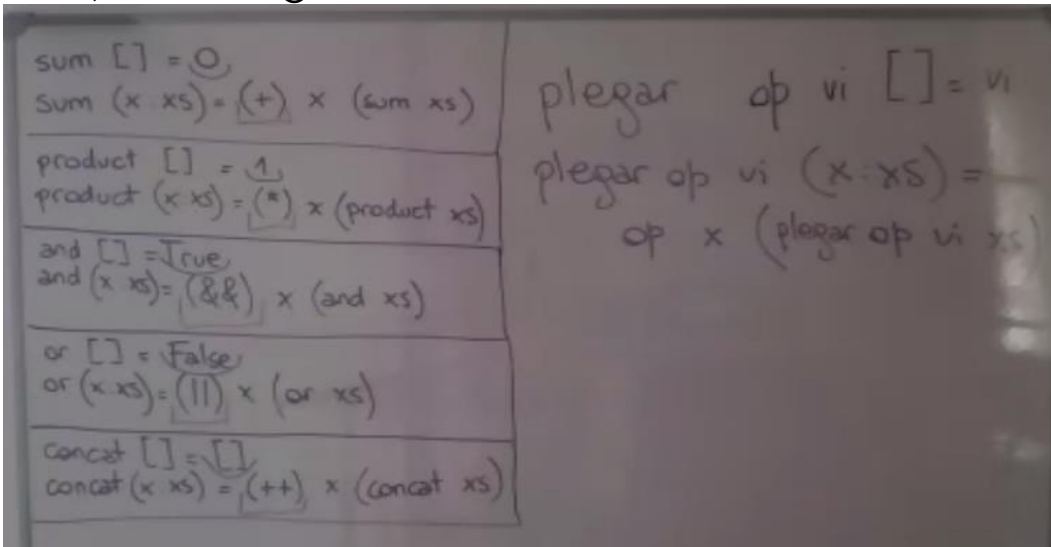 sum [] = 0
sum (x:xs) = (+) x (sum xs)
product [] = 1
product (x:xs) = (*) x (product xs)
and [] = True
and (x:xs) = (&&) x (and xs)
or [] = False
or (x:xs) = (||) x (or xs)
concat [] = []
concat (x:xs) = (++) x (concat xs)
plegar op vi [] = vi
plegar op vi (x:xs) =
op x (plegar op vi xs)